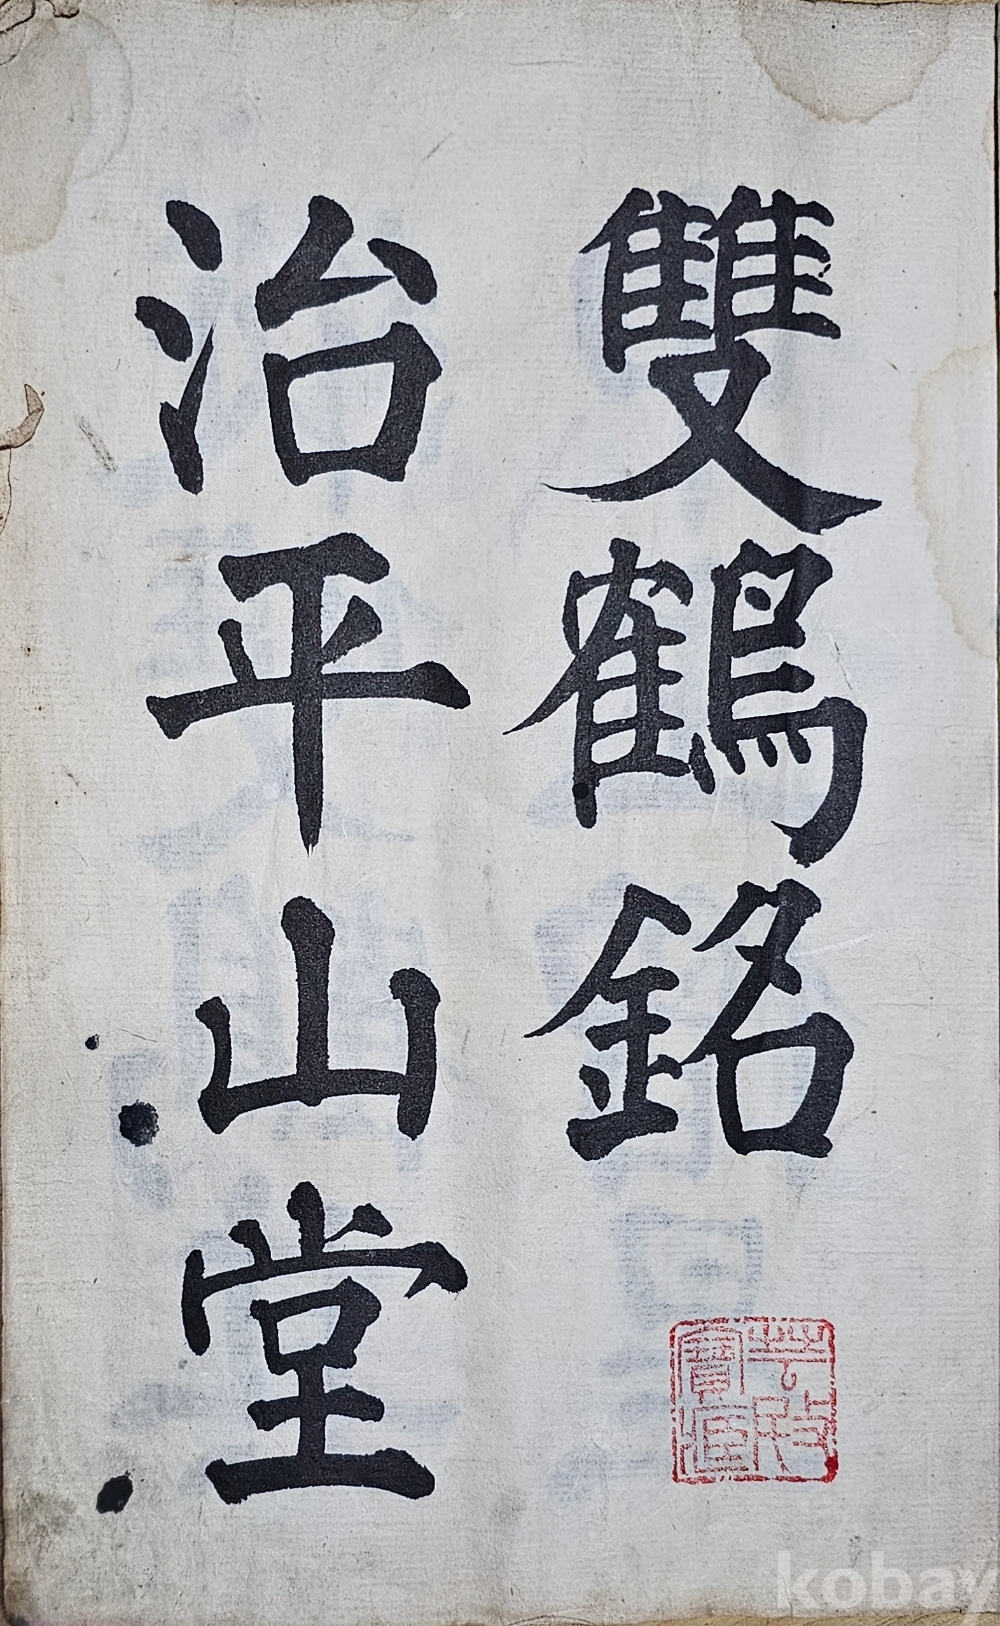 雙鶴銘
治平山堂
kobay